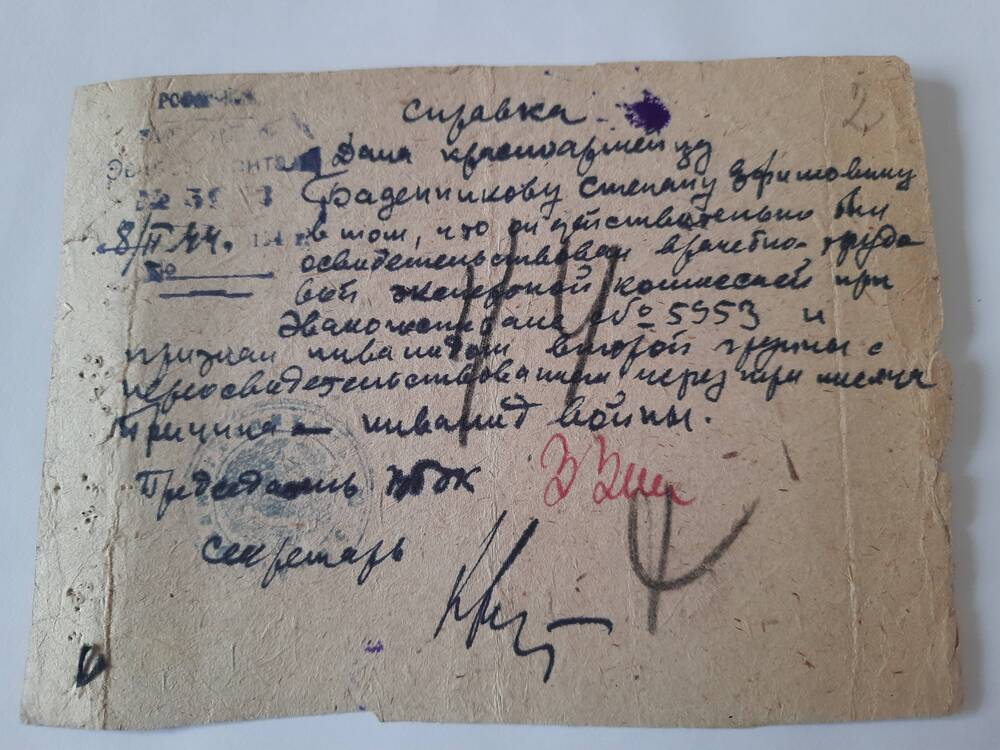 2
РСФСР
Справка
Дана красноармейцу
Баденникову Степану Ефимовичу
8/II 44.
в том, что он действительно был
№
освидетельствован врачебно-трудо
вой экспертной комиссией при
Эвакогоспитале № 5953 и
признан инвалидом второй группы с
переосвидетельствованием через три месяца
Причина — инвалид войны.
Председатель ВТЭК
Секретарь